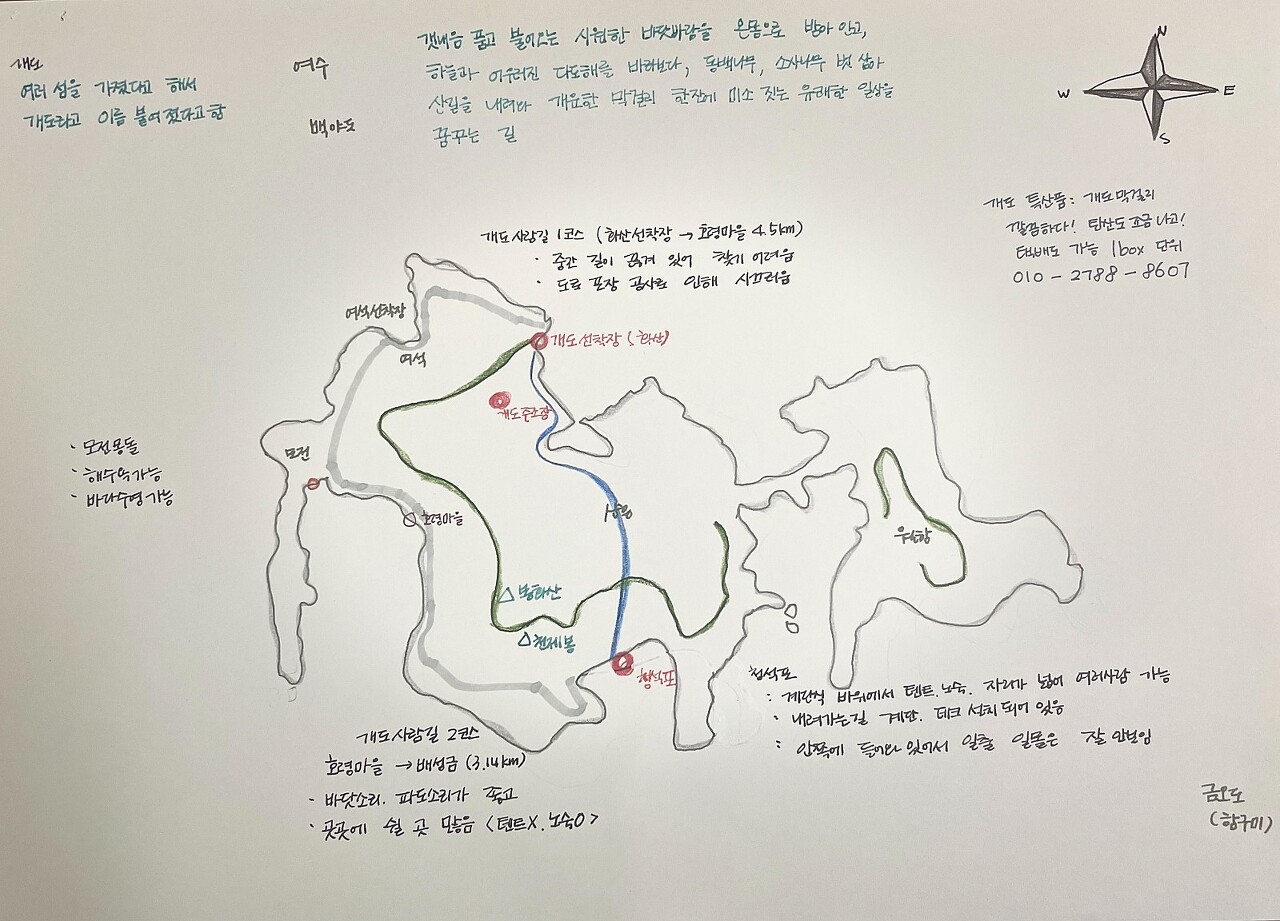 개도
여러 섬을 가졌다고 해서
개도라고 이름 붙여졌다고 함
여수
백야도
갯내음 품고 불어오는 시원한 바닷바람을 온몸으로 받아 안고,
하늘과 어우러진 다도해를 바라보다, 동백나무, 소사나무 벗 삼아
산길을 내려와 개운한 막걸리 한잔에 미소 짓는 유쾌한 일상을
꿈꾸는 길
N
W
E
S
개도 특산품: 개도막걸리
깔끔하다! 탄산도 조금 나고!
택배도 가능 1box 단위
010-2788-8607
개도사람길 1코스 (화산선착장 → 호령마을 4.5km)
· 중간 길이 끊겨 있어 찾기 어려움
· 도로 포장 공사로 인해 시끄러움
여석선착장
여석
개도선착장 (화산)
개도주조장
모전
· 모전몽돌
· 해수욕가능
· 바다수영가능
호령마을
봉화산
천제봉
청석포
청석포
: 계단식 바위에서 텐트.노숙. 자리가 넓어 여러사람 가능
· 내려가는길 계단. 데크 설치 되어 있음
: 안쪽에 들어와 있어서 일출 일몰은 잘 안보임
개도사람길 2코스
호령마을 → 배성금 (3.14km)
· 바닷소리. 파도소리가 좋고
· 곳곳에 쉴 곳 많음 <텐트X. 노숙O>
금오도
(함구미)